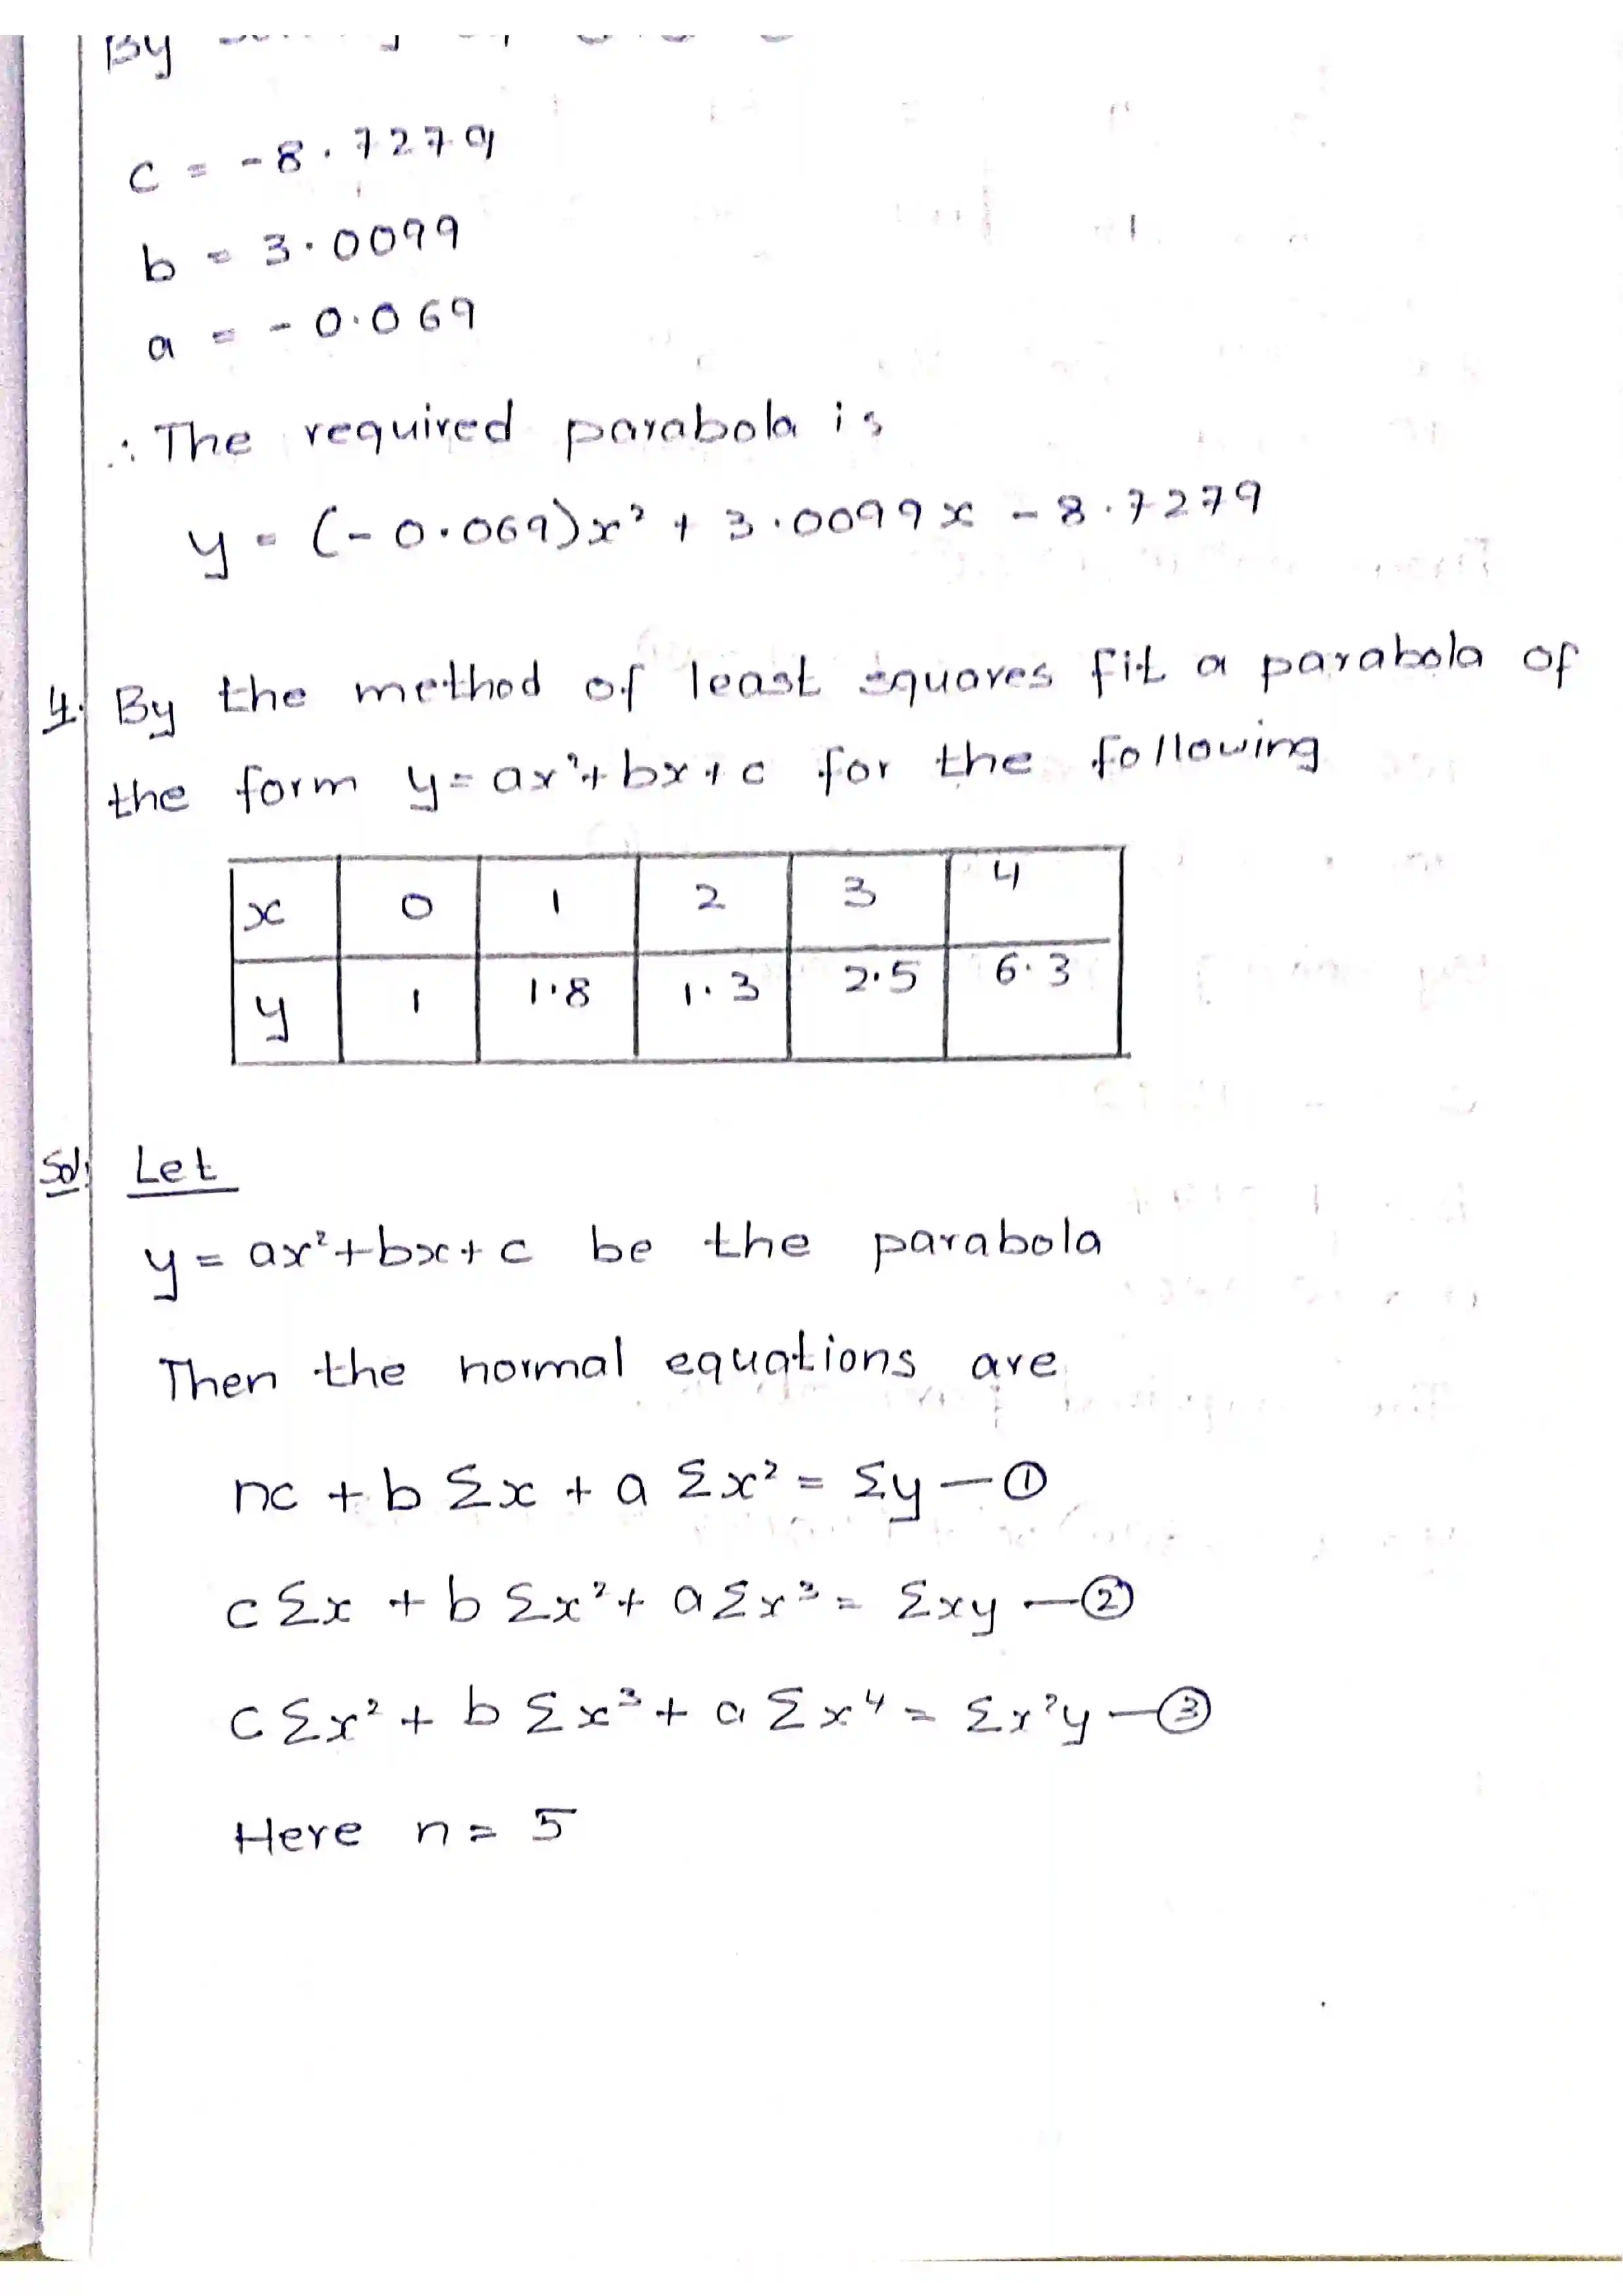 By
c = -8.7279
b = 3.0099
a = -0.069
∴ The required parabola is
y = (-0.069)x² + 3.0099x - 8.7279
4. By the method of least squares fit a parabola of
the form y = ax² + bx + c for the following
x 0 1 2 3 4
y 1 1.8 1.3 2.5 6.3
Sol: Let
y = ax² + bx + c be the parabola
Then the normal equations are
nc + b Σx + a Σx² = Σy — ①
c Σx + b Σx² + a Σx³ = Σxy — ②
c Σx² + b Σx³ + a Σx⁴ = Σx²y — ③
Here n = 5